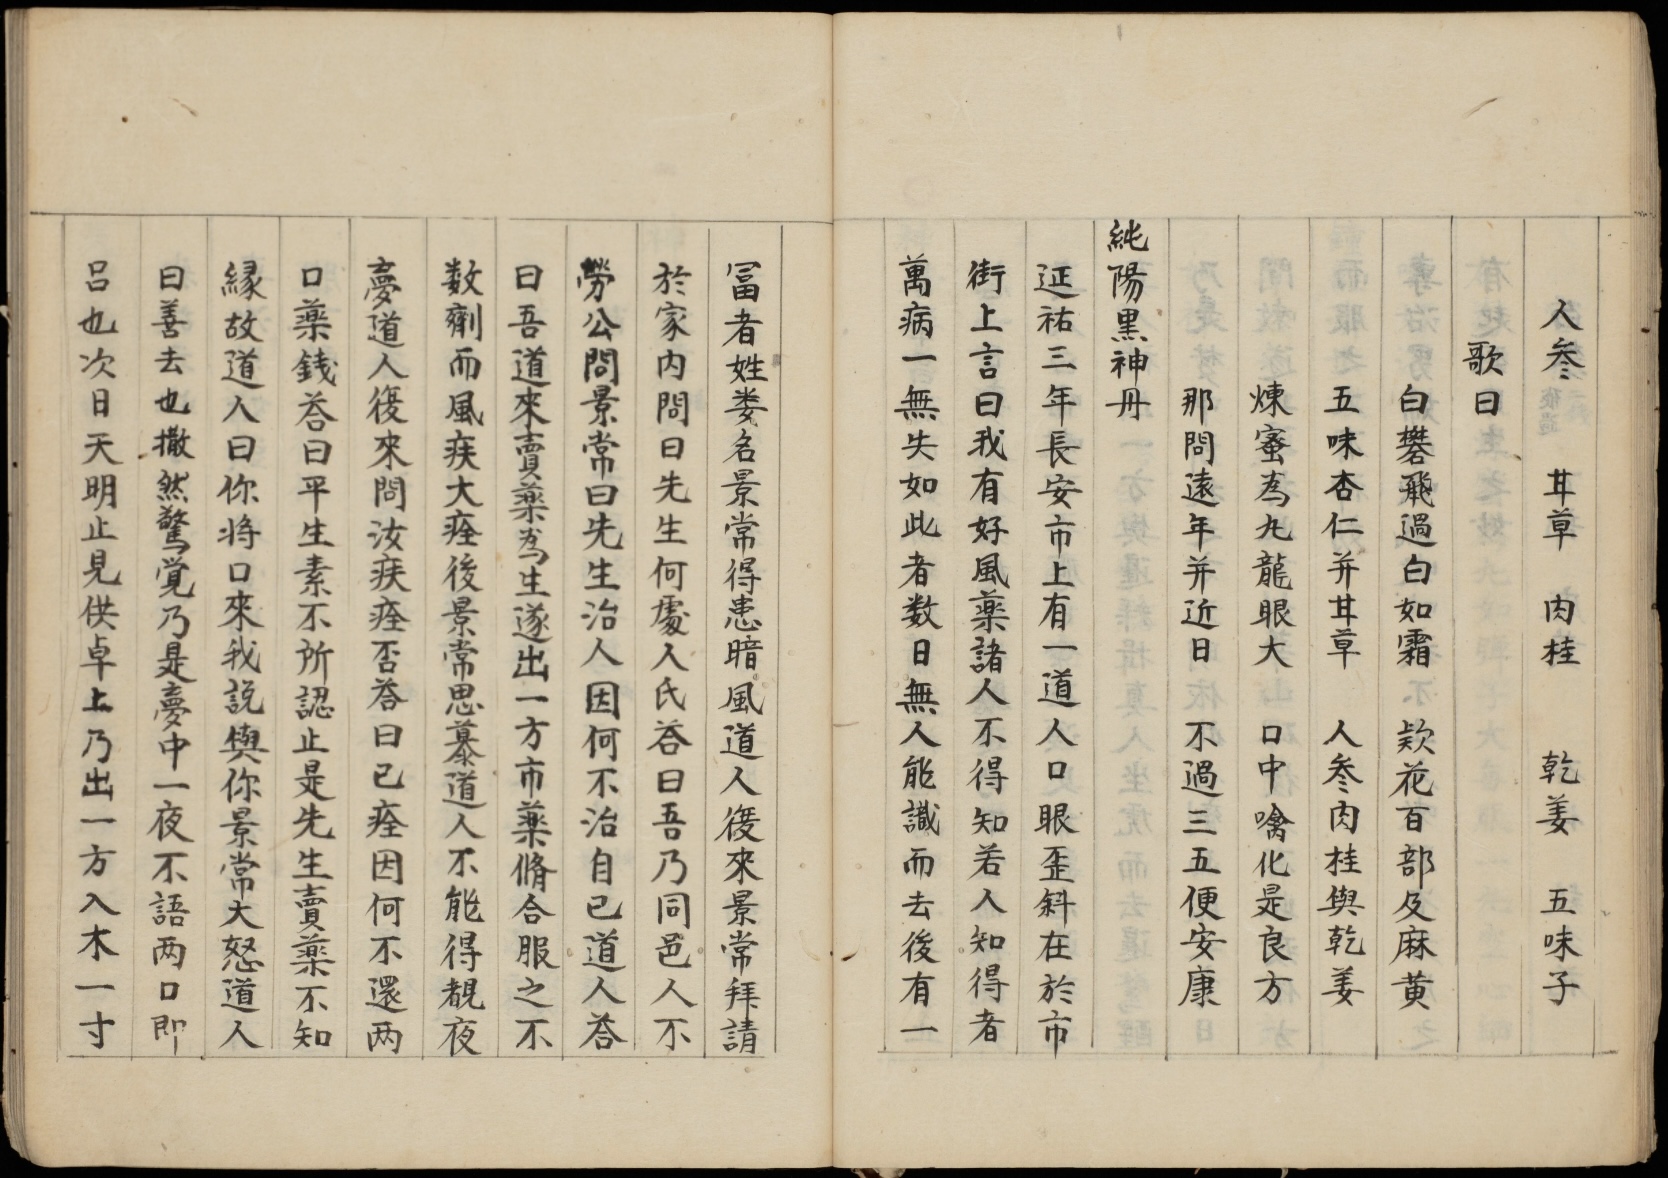 人參 甘草 肉桂 乾姜 五味子
歌曰
白礬飛過白如霜 欵花百部及麻黄
五味杏仁并甘草 人參肉桂與乾姜
煉蜜為丸龍眼大 口中噙化是良方
那問遠年并近日 不過三五便安康
純陽黒神丹
延祐三年長安市上有一道人口眼歪斜在於市
街上言曰我有好風藥諸人不得知若人知得者
萬病一無失如此者数日無人能識而去後有一
冨者姓娄名景常得患暗風道人復來景常拜請
於家内問曰先生何處人氏荅曰吾乃同邑人不
勞公問景常曰先生治人因何不治自己道人荅
曰吾道來賣藥為生遂出一方市藥脩合服之不
数劑而風疾大痊後景常思慕道人不能得覩夜
夢道人復來問汝疾痊否荅曰已痊因何不還两
口藥銭荅曰平生素不所認止是先生賣藥不知
縁故道人曰你将口來我説與你景常大怒道人
曰善去也撒然驚覚乃是夢中一夜不語两口即
呂也次日天明止見供卓上乃出一方入木一寸